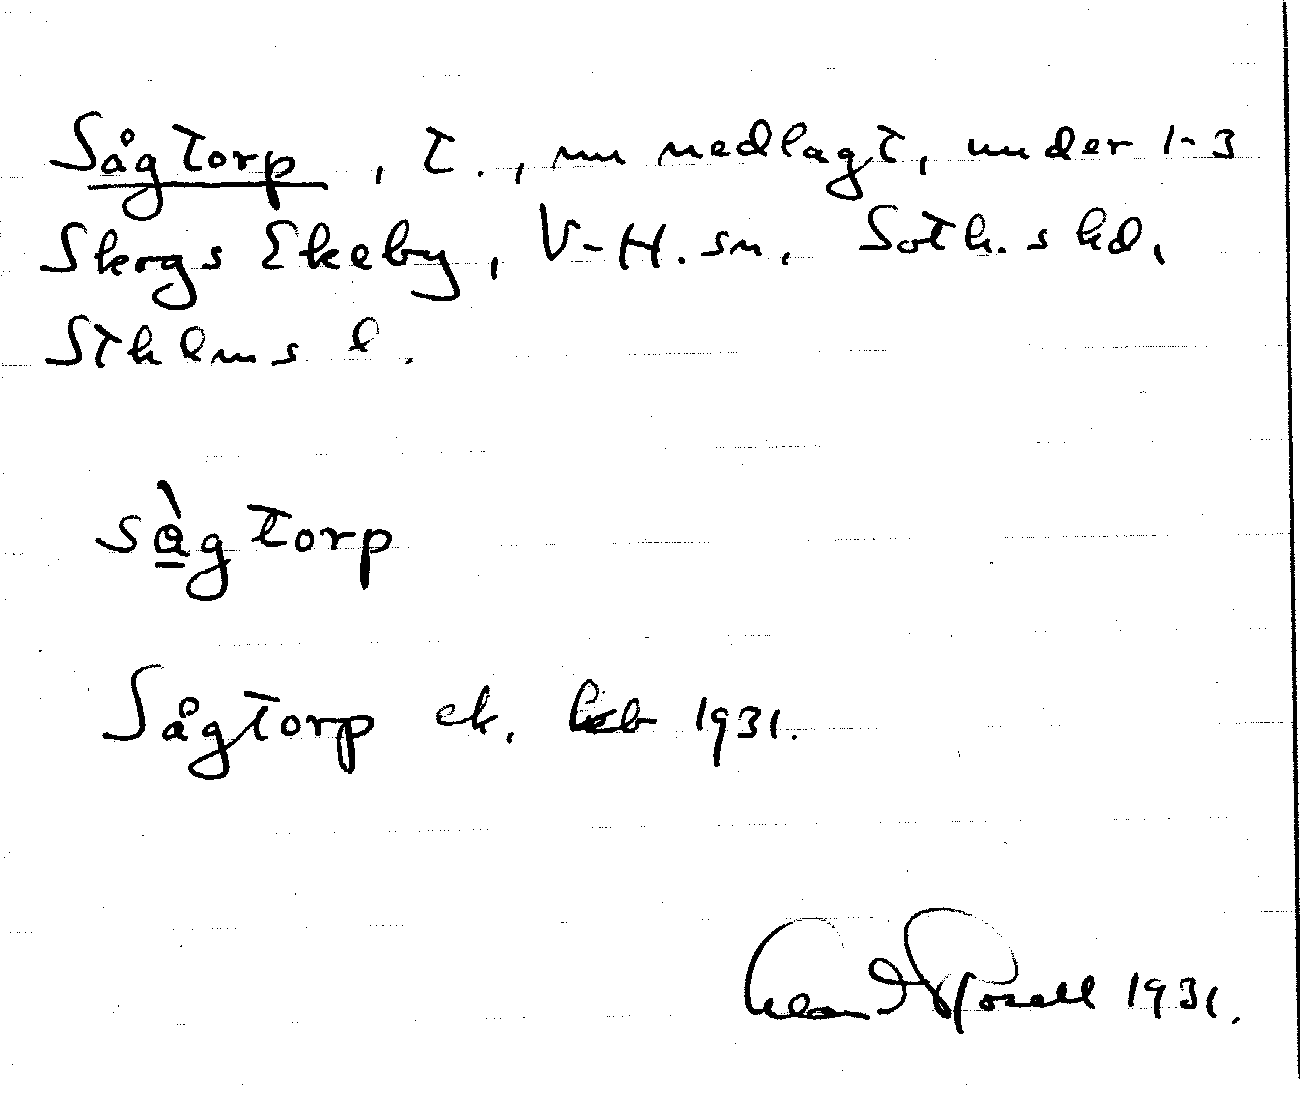 Sågtorp, t., nu nedlagt, under 1-3
Skogs Ekeby, V-H. sn, Soth.s hd,
Sthlms l.
sàgtorp
Sågtorp ek. kb 1931.
1931.